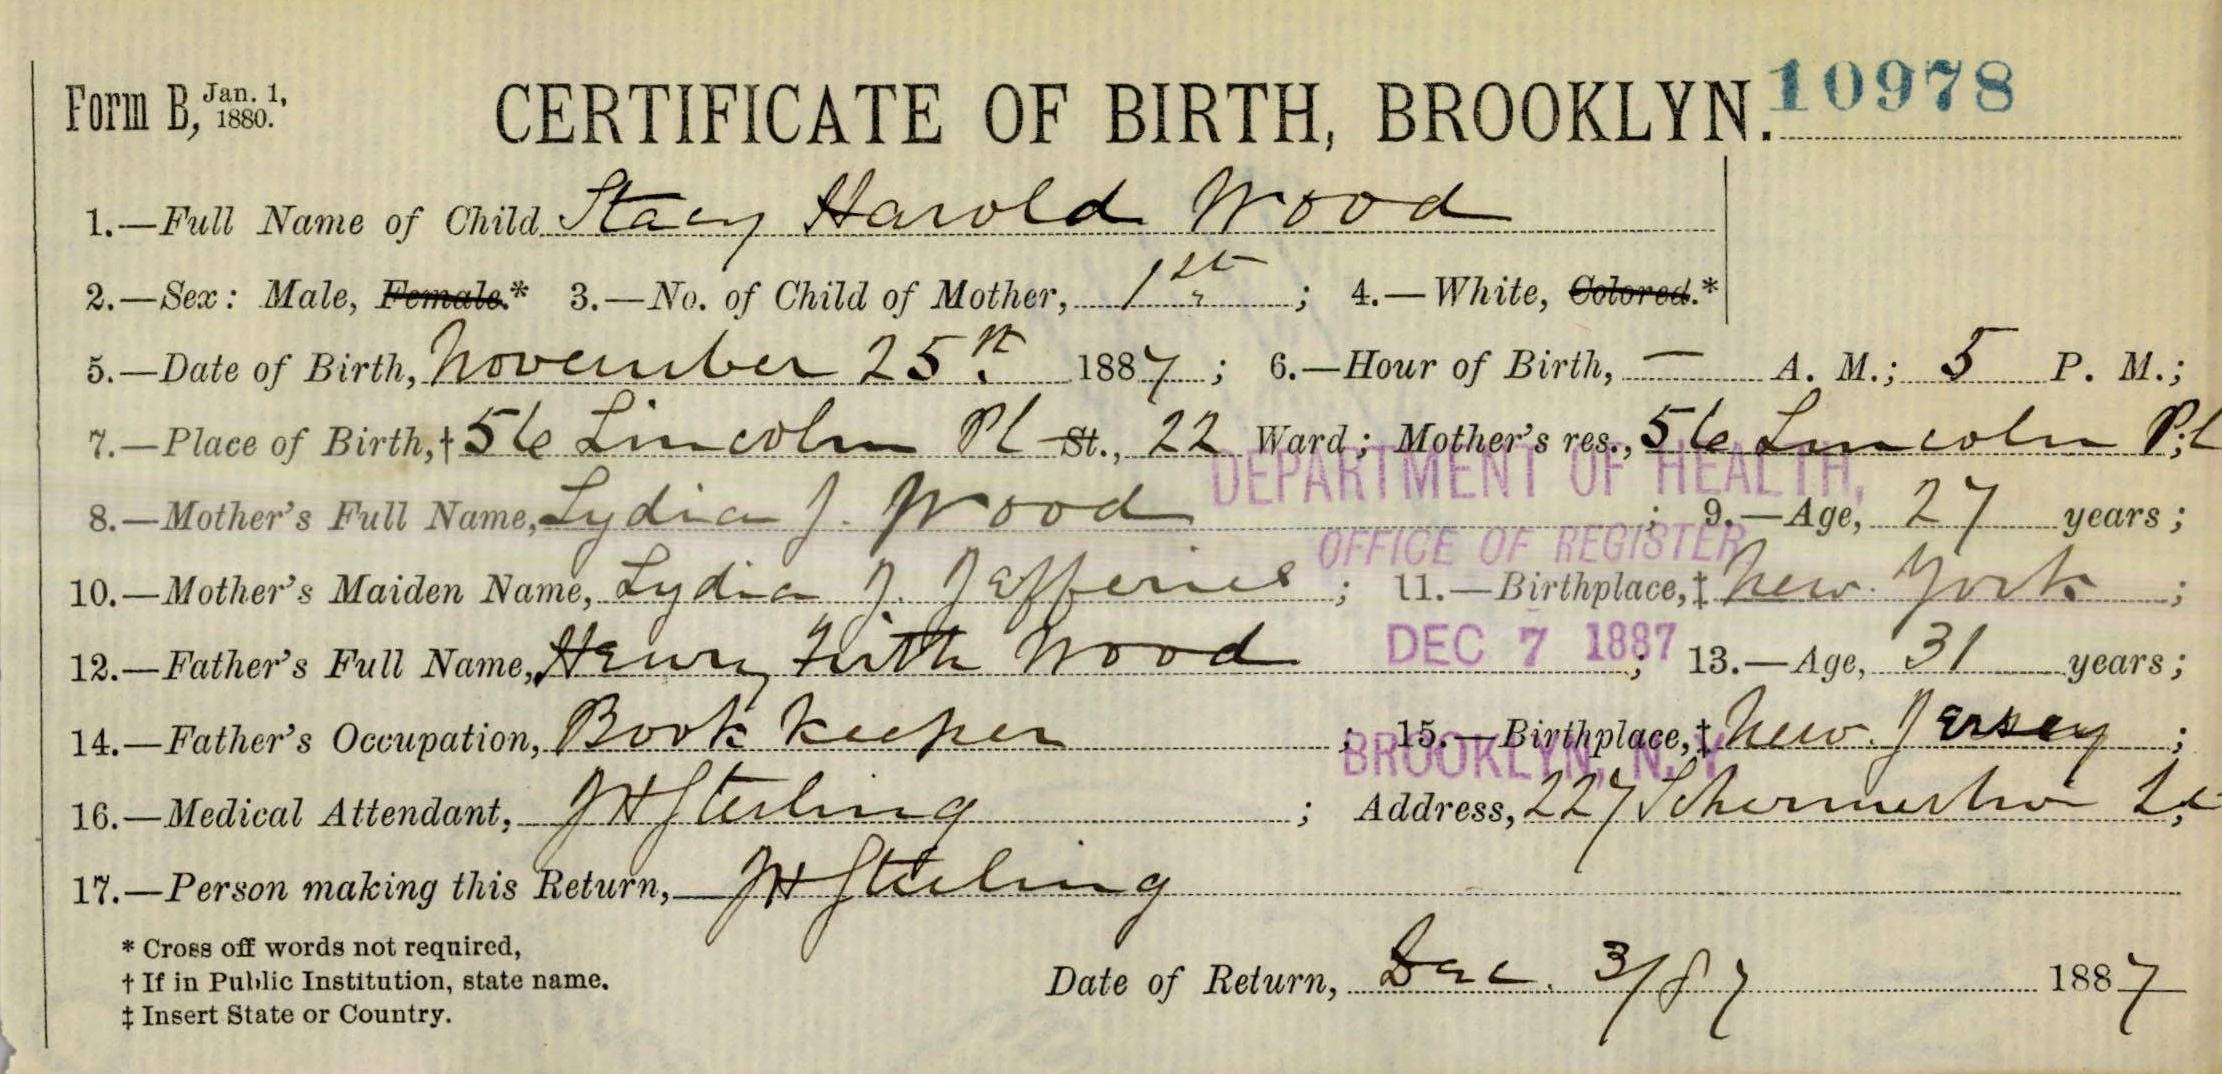 Form B, Jan. 1, 1880. CERTIFICATE OF BIRTH, BROOKLYN. 10978
1.—Full Name of Child Stacy Harold Wood
2.—Sex: Male, Female.* 3.—No. of Child of Mother, 1st; 4.—White, Colored.*
5.—Date of Birth, November 25th. 1887; 6.—Hour of Birth, — A. M.; 5 P. M.;
7.—Place of Birth,† 56 Lincoln Pl St., 22 Ward; Mother's res., 56 Lincoln Pl;
DEPARTMENT OF HEALTH,
8.—Mother's Full Name, Lydia J. Wood; 9.—Age, 27 years;
OFFICE OF REGISTER
10.—Mother's Maiden Name, Lydia J. Jefferies; 11.—Birthplace,‡ New York;
DEC 7 1887
12.—Father's Full Name, Henry Firth Wood; 13.—Age, 31 years;
14.—Father's Occupation, Book keeper; 15.—Birthplace,‡ New Jersey;
BROOKLYN, N.Y
16.—Medical Attendant, JH Sterling; Address, 227 Schermerhor St;
17.—Person making this Return, JH Sterling
* Cross off words not required,
† If in Public Institution, state name.
‡ Insert State or Country.
Date of Return, Dec. 3/87 1887